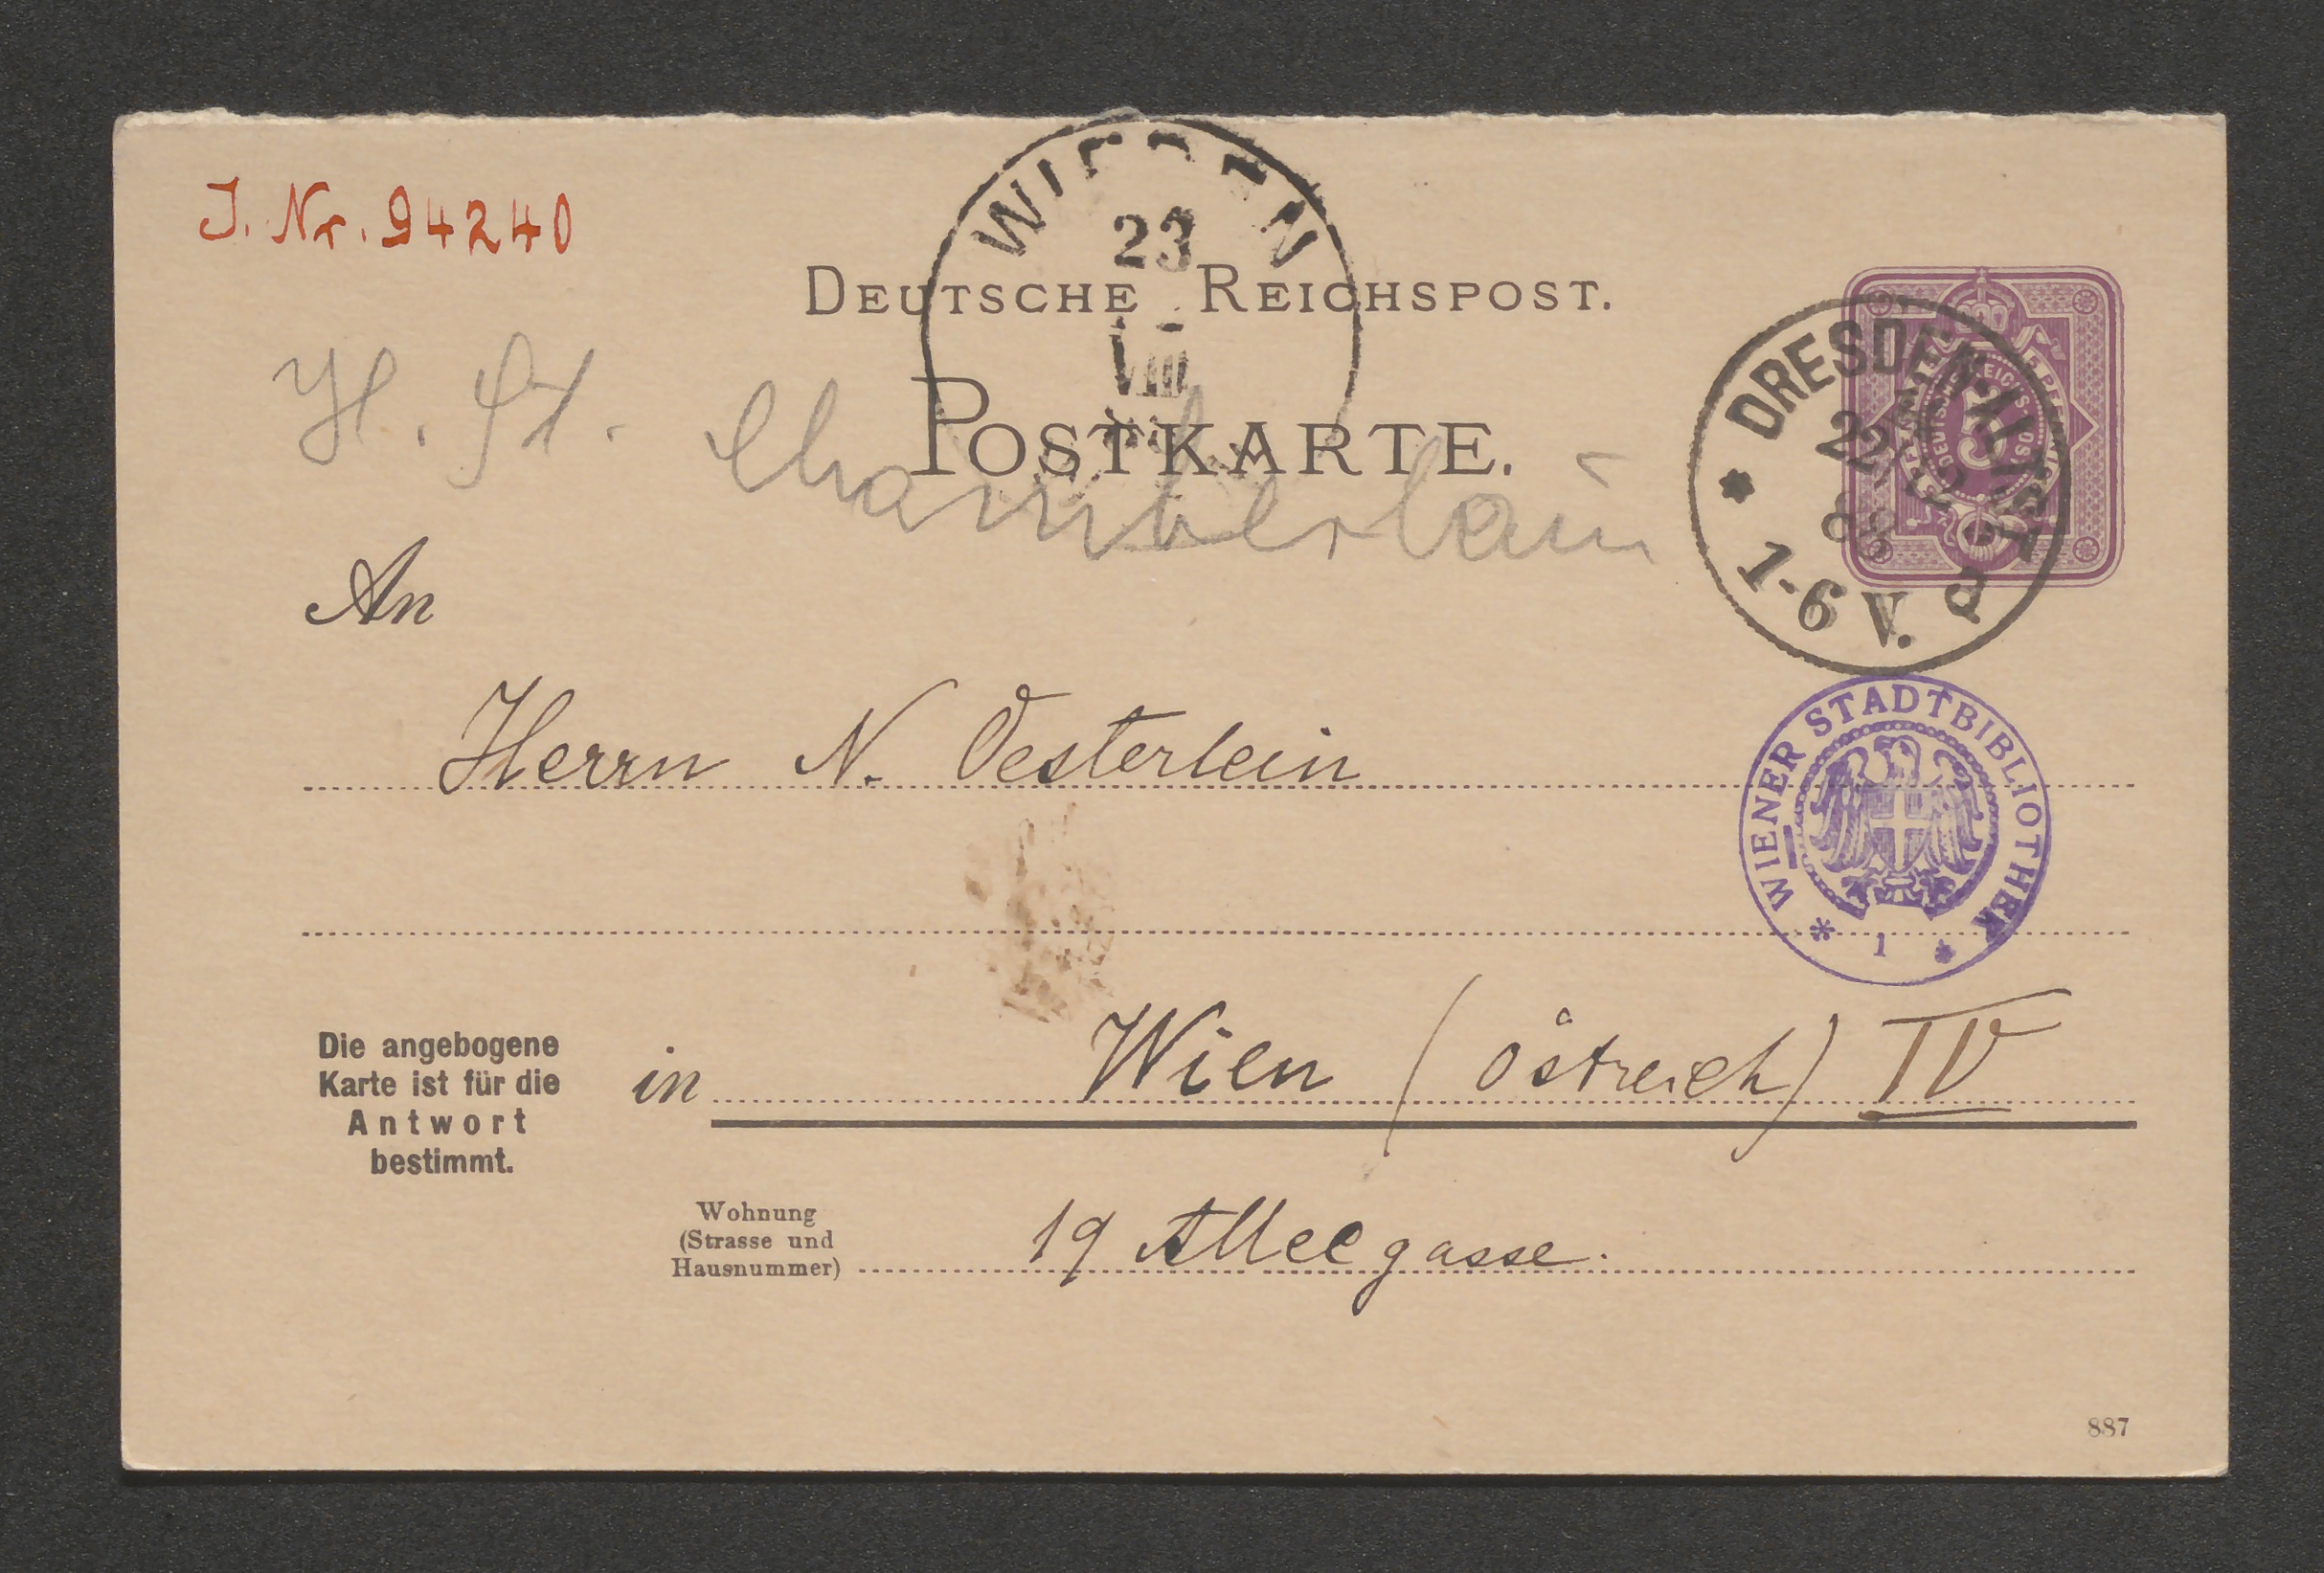 J. Nr. 94240
WIEDEN
23
VIII
DEUTSCHE REICHSPOST.
H. St. Chamberlain
POSTKARTE.
DRESDEN-ALTST.
22/12
88
1-6 V.
d
An
Herrn N. Oesterlein
WIENER STADTBIBLIOTHEK
* 1 *
Die angebogene
Karte ist für die
Antwort
bestimmt.
in Wien (Östreich) IV
Wohnung
(Strasse und
Hausnummer)
19 Alleegasse.
887